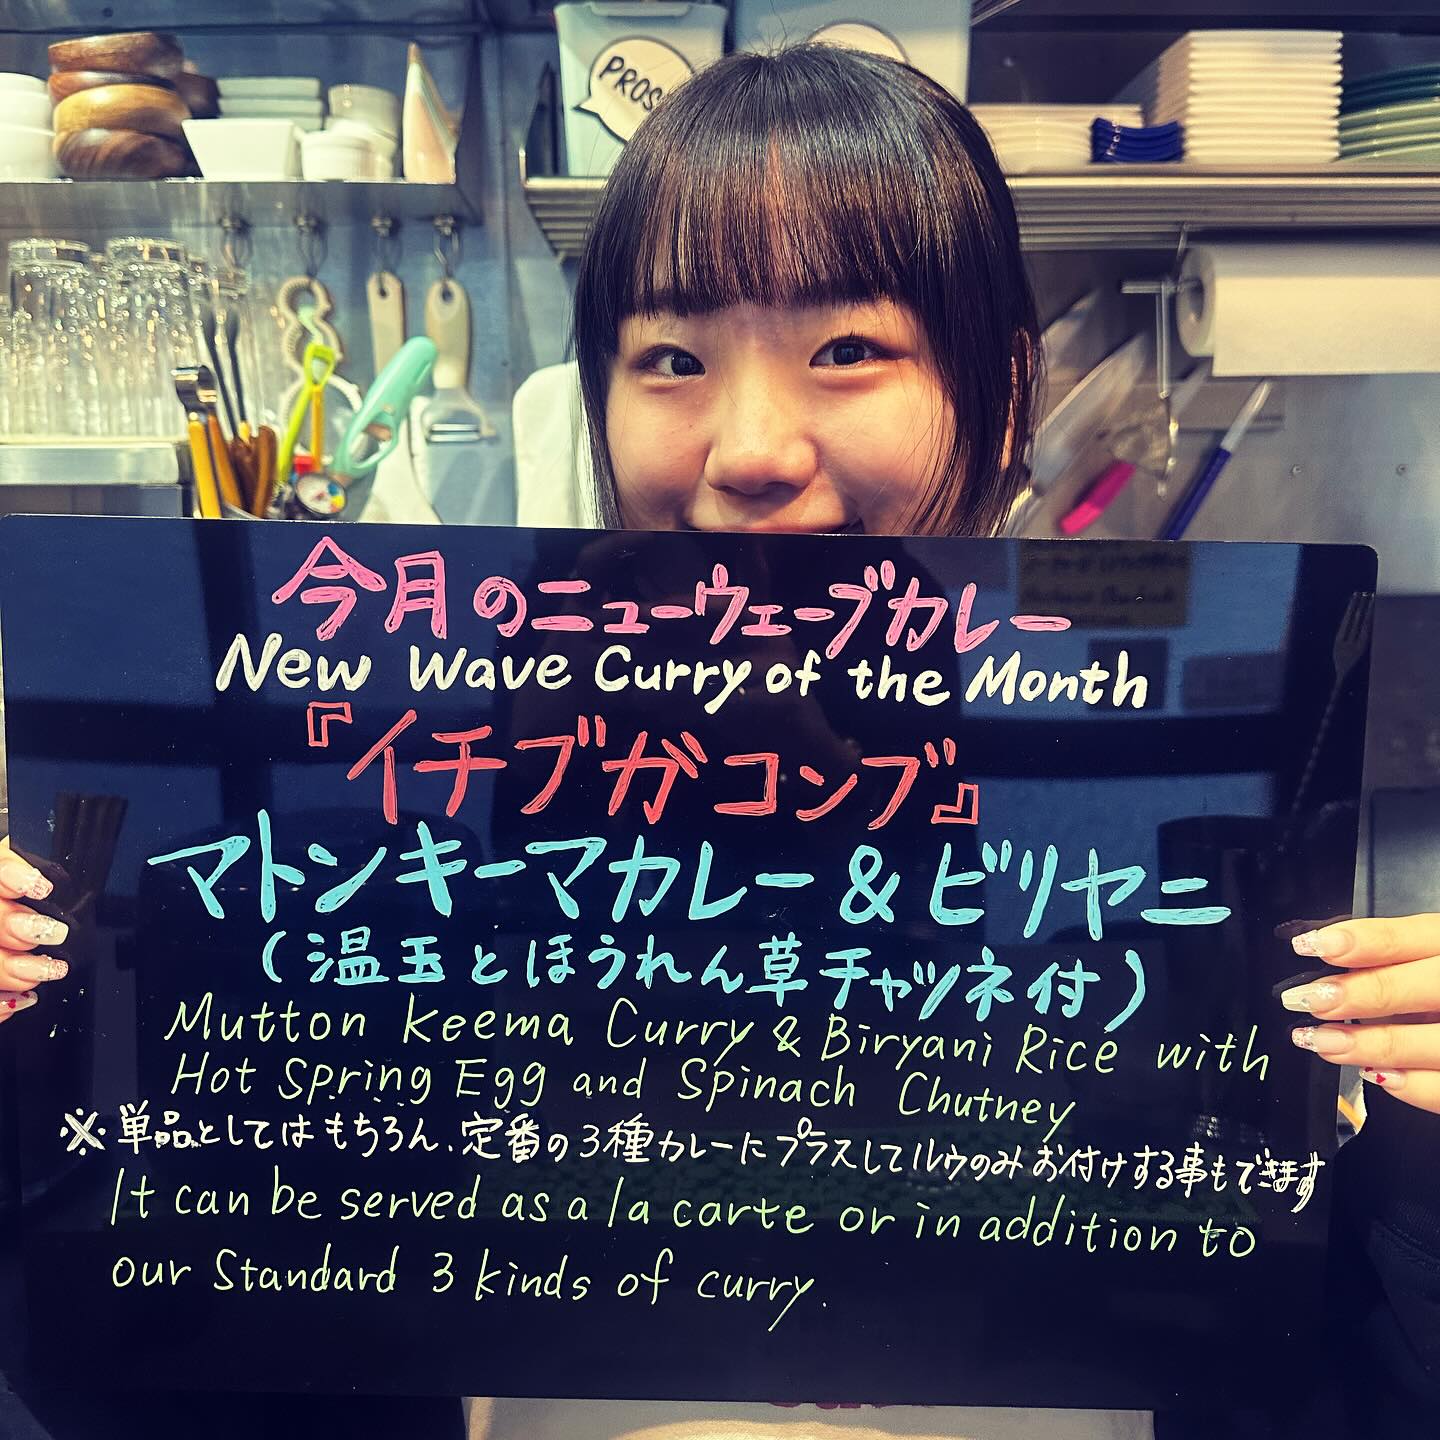 PROS
今月のニューウェーブカレー
New Wave Curry of the Month
『イチブガコンブ』
マトンキーマカレー&ビリヤニ
(温玉とほうれん草チャツネ付)
Mutton Keema Curry & Biryani Rice with
Hot Spring Egg and Spinach Chutney
※単品としてはもちろん、定番の3種カレーにプラスしてルウのみお付けする事もできます
It can be served as a la carte or in addition to
our Standard 3 kinds of curry.